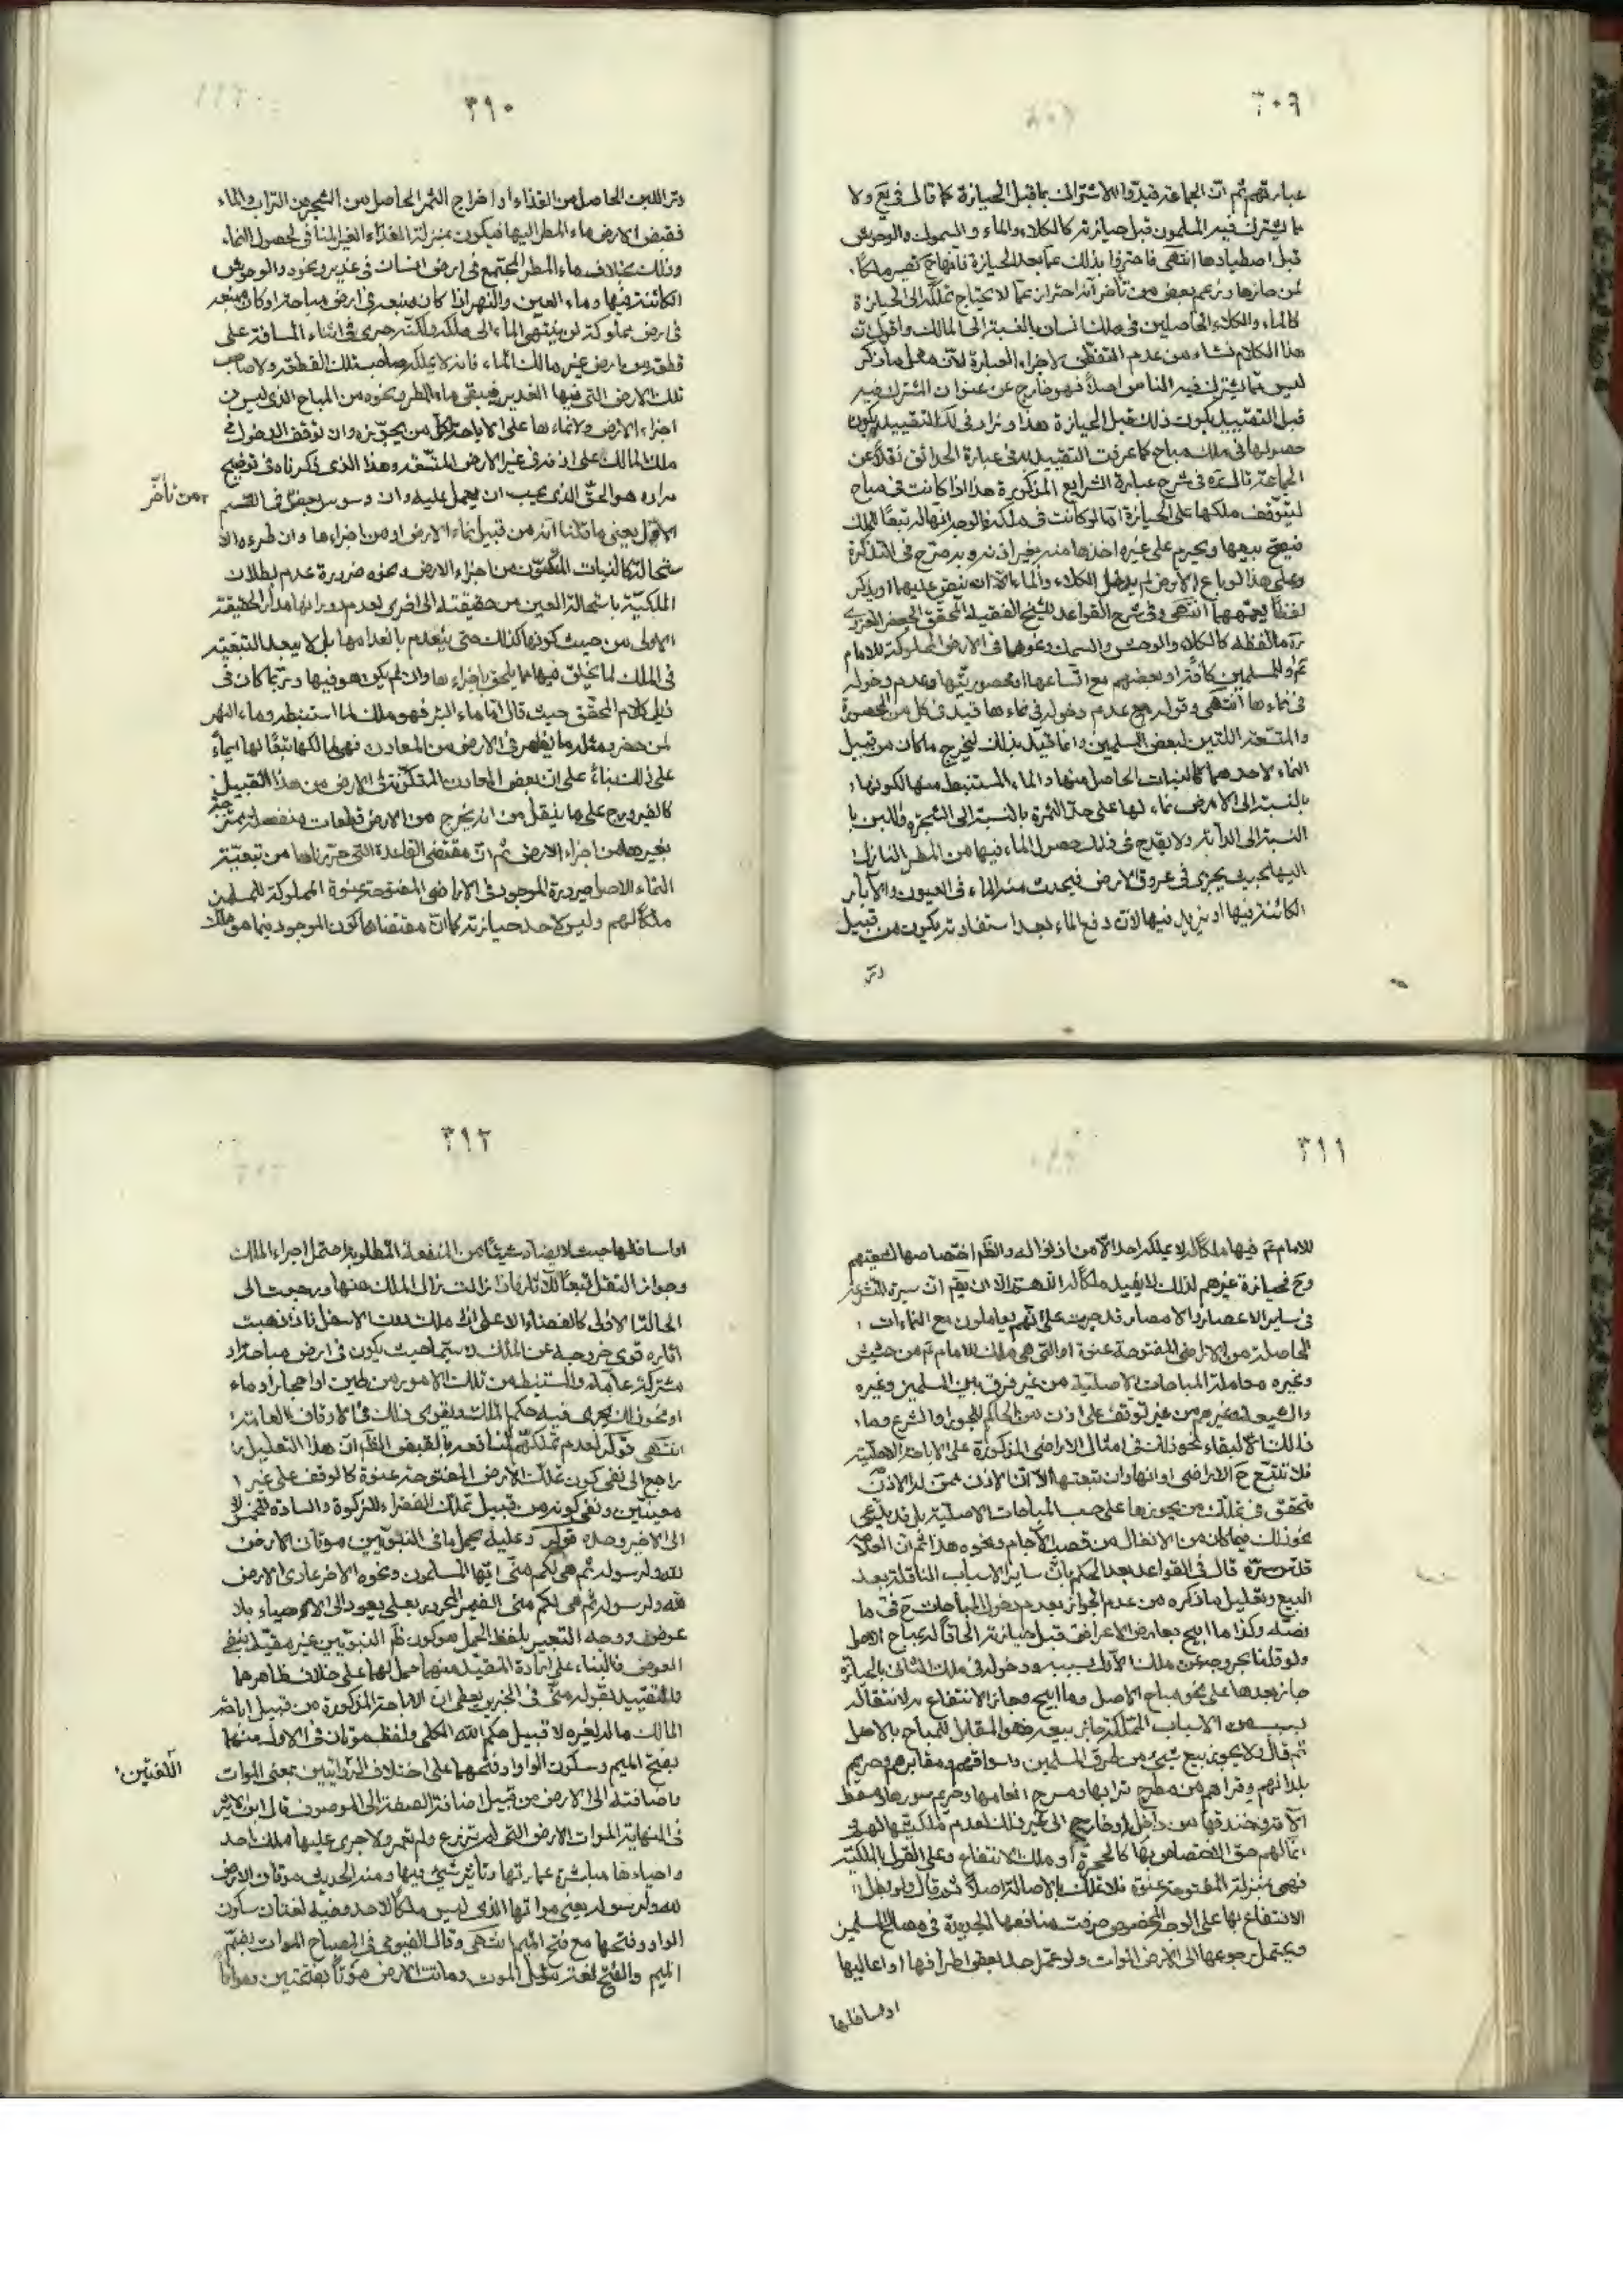 ٣٠٩
عبارتهم ثم ان الجماعة قيدوا الاشتراك بما قبل الحيازة كما قال في يع ولا
ما يشترك فيه المسلمون قبل حيازته كالكلاء والماء والسموك والوحوش
قبل اصطيادها انتهى فاحترزوا بذلك عما بعد الحيازة فانها ح تصير ملكاً
لمن حازها وزعم بعض من تأخر انه احتراز عما لا يحتاج تملكه الى الحيازة
كالماء والكلاء الحاصلين في ملك انسان بالنسبة الى المالك واقول ان
هذا الكلام نشاء من عدم التفطن لاجزاء العبارة لان محل ما ذكر
ليس مما يشترك فيه الناس اصلاً فهو خارج عن عنوان المشترك فيه
قبل التقييد بكون ذلك قبل الحيازة هذا وزاد في لك التقييد بكون
حصولها في ملك مباح كما عرفت التقييد به في عبارة الحدائق نقلاً عن
الجماعة قال ره في شرح عبارة الشرايع المذكورة هذا اذا كانت في مباح
ليتوقف ملكها على الحيازة اما لو كانت في ملكه فالوجه انها له تبعًا للملك
فيصح بيعها ويحرم على غيره اخذها منه بغير اذنه وبه صرح في التذكرة
وعلى هذا لو باع الارض لم يدخل الكلاء والماء الا ان ينص عليهما او يذكر
لفظاً يعمهما انتهى وفي شرح القواعد للشيخ الفقيه المحقق الجعفر الغروي
ره ما لفظه كالكلاء والوحش والسمك ونحوها في الارض المملوكة للامام
ع او للمسلمين كافة او بعضهم مع اتساعها او محصوريتها وعدم دخوله
في نماءها انتهى وقوله مع عدم دخوله في نماءها قيد في كل من المحصورة
والمتسعة اللتين لبعض المسلمين وانما قيد بذلك ليخرج ما كان من قبيل
النماء لاحدهما كالنبات الحاصل منها والماء المستنبط منها لكونها
بالنسبة الى الارض نماء لها على حد الثمرة بالنسبة الى الشجرة واللبن با
لنسبة الى الدابة ولا يقدح في ذلك حصول الماء فيها من المطر النازل
اليها بحيث يجرى في عروق الارض فيحدث منه الماء في العيون والآبار
الكائنة فيها او يزيد فيها لان دفع الماء بعد استفادته يكون من قبيل
در
٣١٠
در اللبن الحاصل من الغذاء او اخراج الثمر الحاصل من الشجر من التراب والماء
فقبض الارض ماء المطر اليها فيكون بمنزلة الغذاء الغير المنافي لحصول النماء
وذلك بخلاف ماء المطر المجتمع في ارض انسان في غدير ونحوه والوحوش
الكائنة فيها وماء العين والنهر اذا كان منبعه في ارض مباحة او كان منبعه
في ارض مملوكة لمن ينتهي الماء الى ملكه ولكنه جرى في اثناء المسافة على
قطعة من ارض غير مالك الماء فانه لا يملكه صاحب تلك القطعة ولا صاحب
تلك الارض التي فيها الغدير فيبقى ماء المطر ونحوه من المباح الذي ليس من
اجزاء الارض ولا نماءها على الاباحة لكل من يحوزه وان توقف الدخول في
ملك المالك على اذنه في غير الارض المتسعة وهذا الذي ذكرناه في توضيح
مراده هو الحق الذي يجب ان يعمل عليه وان وسوس بعض في القسم
من تأخر
الاول يعني ما قلنا انه من قبيل نماء الارض او من اجزاءها وان طرء الا
ستحالة كالنبات المتكون من اجزاء الارض ونحوه ضرورة عدم بطلان
الملكية باستحالة العين من حقيقته الى اخرى لعدم دورانها مدار الحقيقة
الاولى من حيث كونها كذلك حتى ينعدم بانعدامها بل لا يبعد التبعية
في الملك لما يتخلق فيها مما يلحق باجزاءها وان لم يكن هو فيها وربما كان في
ذيل كلام المحقق حيث قال اما ماء البئر فهو ملك لما استنبطه وماء النهر
لمن حفره ومثله ما يظهر في الارض من المعادن فهي لمالكها تبعًا لها ايماءً
على ذلك بناءً على ان بعض المعادن المتكونة في الارض من هذا القبيل
كالفيروزج على ما ينقل من انه يخرج من الارض قطعات منفصلة متميزة
بغيرها من اجزاء الارض ثم ان مقتضى القاعدة التي حررناها من تبعية
النماء للاصل صيرورة الموجود في الاراضي المفتوحة عنوة المملوكة للمسلمين
ملكاً لهم وليس لاحد حيازته كما ان مقتضاها كون الموجود فيما هو ملك
٣١١
للامام ع فيها ملكاً له لا يملكه احد الا من اذن له والظ اختصاصها لشيعتهم
وح فحيازة غيرهم لذلك لا يفيد ملكاً له اللهم الا ان يقم ان سيرة المتشرعة
في ساير الاعصار والامصار قد جرت على انهم يعاملون مع النماءات
الحاصلة من الاراضي المفتوحة عنوة او التي هي ملك للامام ع من حشيش
وغيره معاملة المباحات الاصلية من غير فرق بين المسلمين وغيره
والشيعة وغيرهم من غير توقف على اذن من الحاكم للجور او الشرع وما
ذلك الا لبقاء نحو ذلك في امثال الاراضي المذكورة على الاباحة الاصلية
فلا تتبع ح الاراضي او انها وان تبعتها الا ان الاذن ممن له الاذن
متحقق في تملك من يحوزها على حسب المباحات الاصلية بل قد يدعى
نحو ذلك فيما كان من الانفال من قصب الآجام ونحوه هذا ثم ان العلامة
قدس سره قال في القواعد بعد الحكم بان ساير الاسباب الناقلة بعد
البيع وتعليل ما ذكره من عدم الجواز بعدم دخول المباحات ح في ما
نصه وكذا ما ابيح بعارض الاعراض قبل حيازته الحاقاً له بمباح الاصل
ولو قلنا بخروجه عن ملك الاول بسببه ودخوله في ملك الثاني بالحيازة
جاز بعدها على نحو مباح الاصل وما ابيح وجاز الانتفاع به لانتقاله
بسبب من الاسباب المملكة جاز بيعه وهو المقابل للمباح بالاصل
ثم قال ولا يجوز بيع شيء من طرق المسلمين واسواقهم ومقابرهم وحريم
بلدانهم وقراهم من مطرح ترابها ومسرح انعامها وحريم سورها ومحط
الاتربة وخندقها من داخل او خارج الى غير ذلك لعدم ملكيتها لهم
انما لهم حق الاختصاص بها كالحجرة او ملك الانتفاع وعلى القول بالملكية
فهي بمنزلة المفتوحة عنوة فلا تملك بالاصالة اصلاً ثم قال ولو بطل
الانتفاع بها على الوجه المخصوص صرفت منافعها الجديدة في مصالح المسلمين
ويحتمل رجوعها الى الارض الموات ولو عمل احد بعض اطرافها او اعاليها
او اسافلها
٣١٢
او اسافلها حيث لا يضاد شيئاً من المنفعة المطلوبة احتمل اجراء الملك
وجواز النقل تبعًا للآثار فاذا زالت زال الملك عنها ورجعت الى
الحالة الاولى كالفضاء الاعلى اذا ملك دون الاسفل فاذا ذهبت
آثاره قوى خروجه عن الملك ولا سيما حيث يكون في ارض مباحة او
مشتركة عامة والمستنبط من تلك الامور من طين او احجار او ماء
او نحو ذلك يجرى فيه حكم الملك ويقوى ذلك في الاوقاف العامة
انتهى قوله لعدم تملكهم لمنافعه بالقبض الظ ان هذا التعليل
راجع الى نفي كون تملك الارض المفتوحة عنوة كالوقف على غير
معينين ونفي كونه من قبيل تملك الفقراء للزكوة والسادة للخمس لا
الى الاخير وحده قوله وعليه يحمل ما في النبويين موتان الارض
لله ولرسوله ثم هي لكم مني ايها المسلمون ونحوه الاخر عادي الارض
لله ولرسوله ثم هي لكم مني الضمير المجرور بعلى يعود الى الاحياء بلا
عوض ووجه التعبير بلفظ الحمل هو كون ظ النبويين غير مقيد بنفي
العوض فالبناء على ارادة المقيد منهما حمل لهما على خلاف ظاهرهما
والتقييد بقوله مني في الخبرين يعطى ان الاباحة المذكورة من قبيل اباحة
المالك ماله لغيره لا قبيل حكم الله الكلي ولفظ موتان في الاول منهما
بفتح الميم وسكون الواو او فتحها على اختلاف الروايتين بمعنى الموات
اللغتين
واضافته الى الارض من قبيل اضافة الصفة الى الموصوف قال ابن الاثير
في النهاية الموات الارض التي لم تزرع ولم تعمر ولا جرى عليها ملك احد
واحياءها مباشرة عمارتها وتأثير شيء فيها ومنه الحديث موتان الارض
لله ولرسوله يعني مواتها الذي ليس ملكاً لاحد وفيه لغتان سكون
الواو وفتحها مع فتح الميم انتهى وقال الفيومي في المصباح الموات بضم
الميم والفتح لغة مثل الموت وماتت الارض موتاً بفتحتين ومواتاً